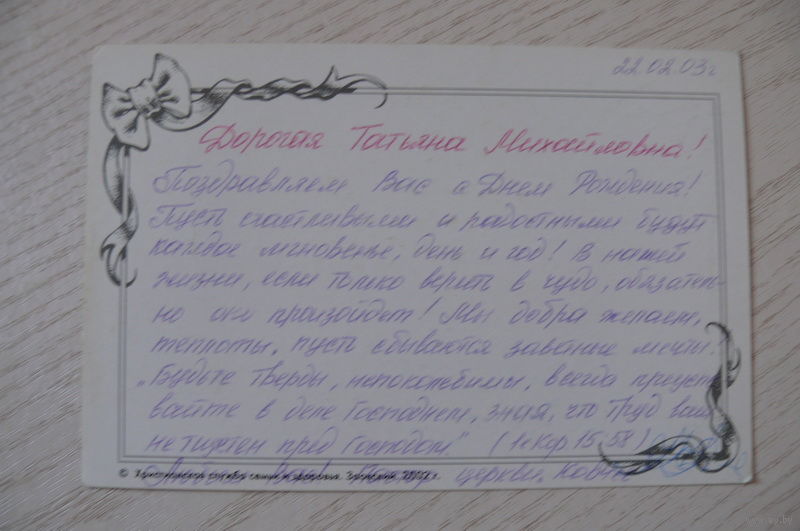 22.02.03 г
Дорогая Татьяна Михайловна!
Поздравляем Вас с Днем Рождения!
Пусть счастливыми и радостными будут
каждое мгновенье, день и год! В нашей
жизни, если только верить в чудо, обязатель-
но оно произойдет! Мы добра желаем,
теплоты, пусть сбываются заветные мечты!
„Будьте тверды, непоколебимы, всегда преуспе-
вайте в деле Господнем, зная, что труд ваш
не тщетен пред Господом" (1е Кор. 15, 58)
© Христианская служба семьи и здоровья. Заокский, 2002 г.
церкви